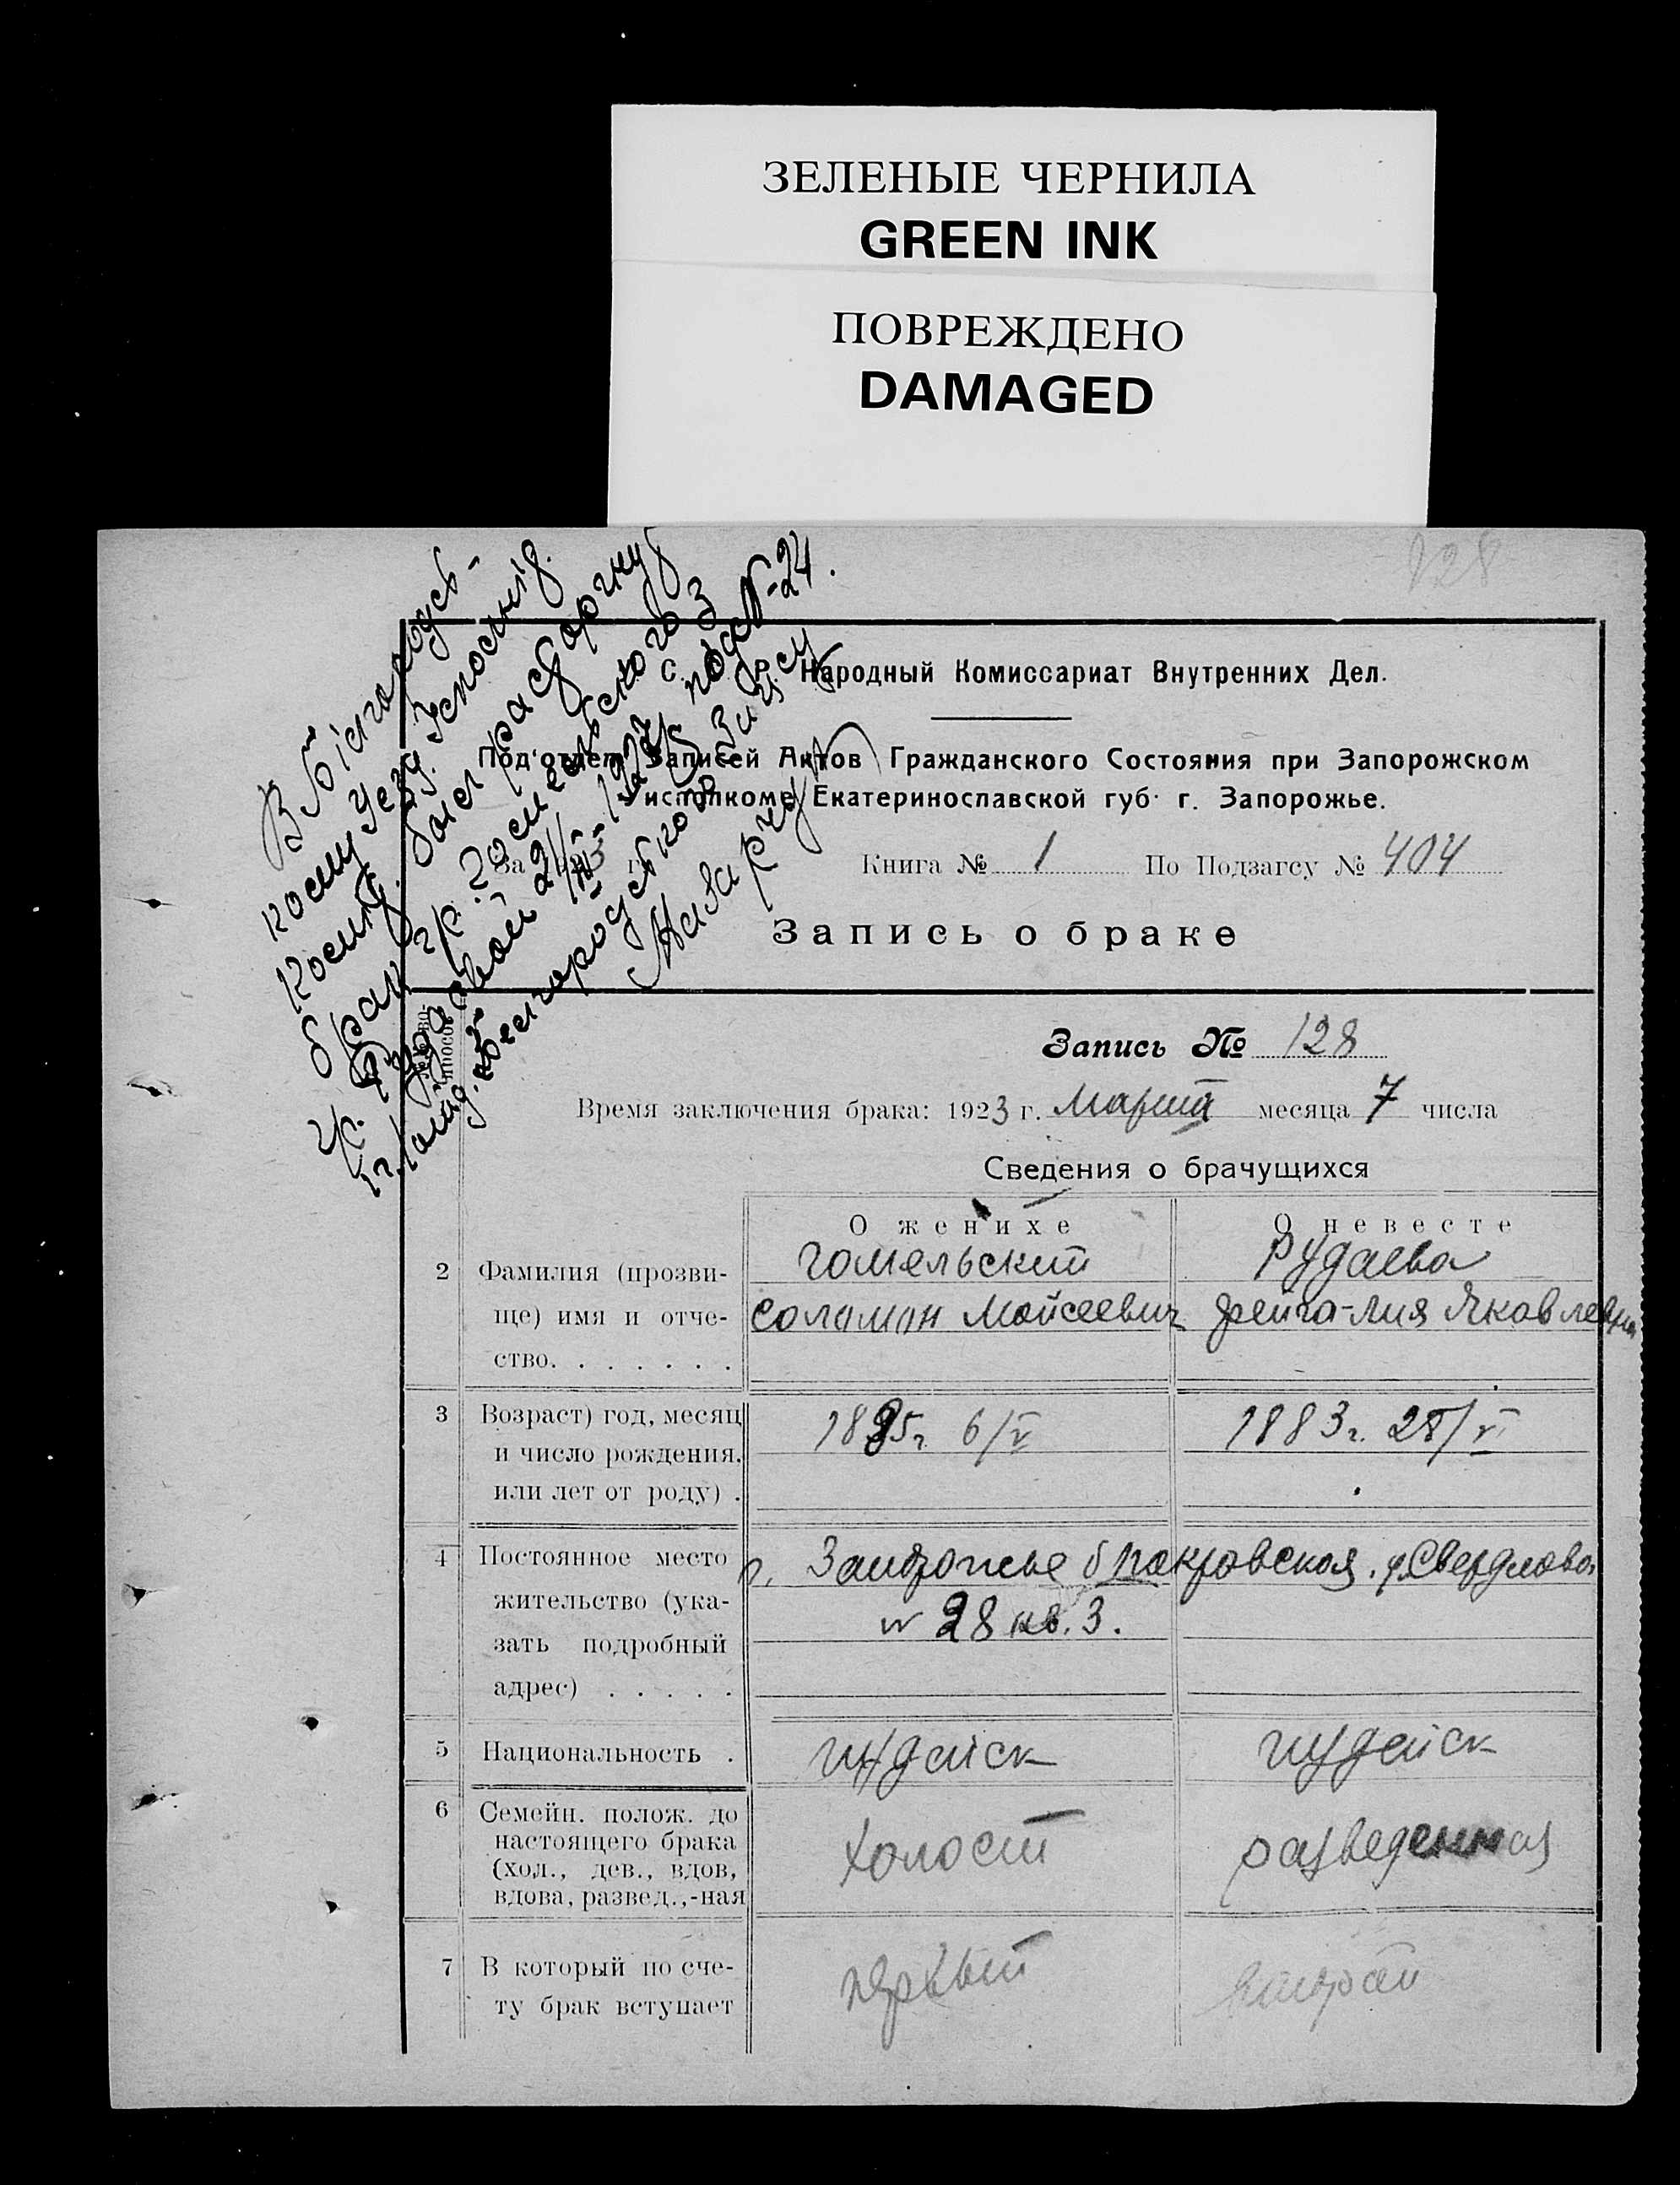 ЗЕЛЕНЫЕ ЧЕРНИЛА
GREEN INK
ПОВРЕЖДЕНО
DAMAGED
128
В Білгородсь-
кому
був
брак гр. Гомельского з
гр. Рудаєвой 24/III 1924 г. под № 24.
Народный Комиссариат Внутренних Дел.
Под'отдел Записей Актов Гражданского Состояния при Запорожском
Уисполкоме Екатеринославской губ. г. Запорожье.
За 1923 г.
Книга № 1 По Подзагсу № 404
Запись о браке
Запись № 128
Время заключения брака: 1923 г. Марта месяца 7 числа
Сведения о брачущихся
О женихе О невесте
2 Фамилия (прозви- Гомельский Рудаева
ще) имя и отче- Соломон Мойсеевич Фейга-Лия Яковлевна
ство. . . . . . .
3 Возраст) год, месяц 1895 г. 6/V 1883 г. 28/V
и число рождения.
или лет от роду) .
4 Постоянное место г. Запорожье б Покровская. у. Свердлова
жительство (ука- № 28 кв. 3.
зать подробный
адрес) . . . . .
5 Национальность . иудейск иудейск
6 Семейн. полож. до
настоящего брака холост разведенная
(хол., дев., вдов,
вдова, развед.,-ная
7 В который по сче- первый второй
ту брак вступает